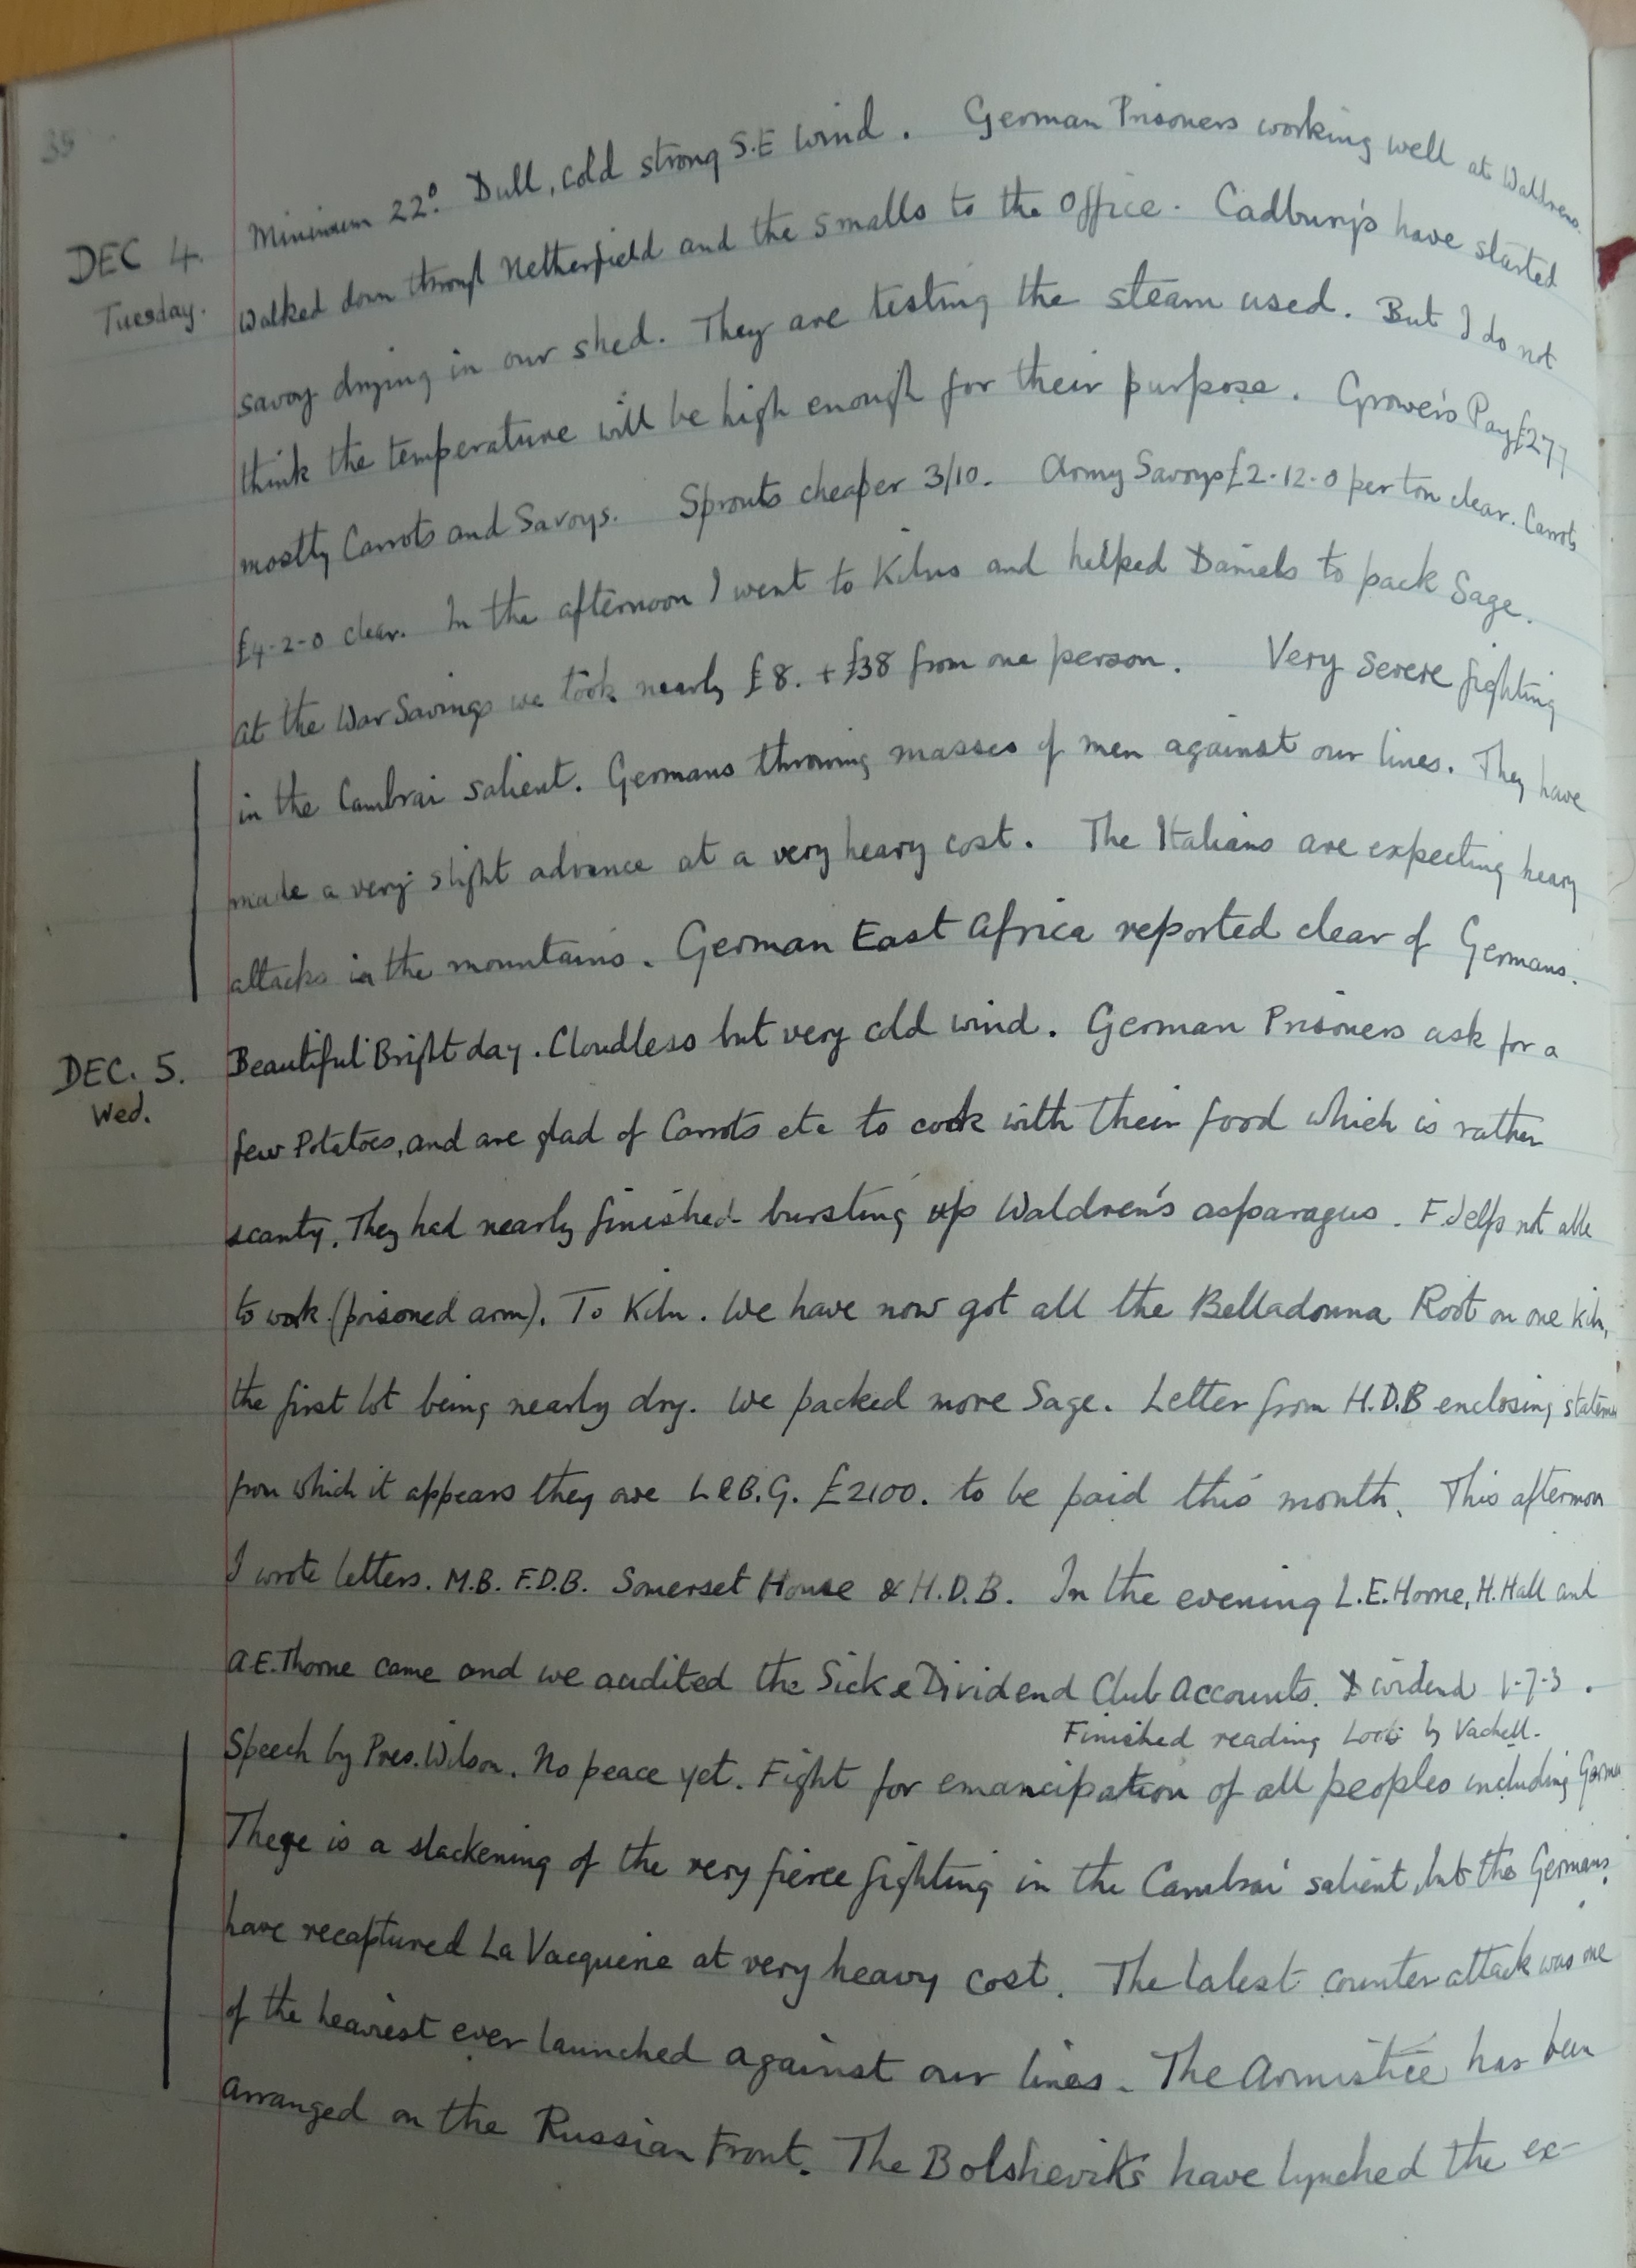 39
DEC 4.
Tuesday.
Minimum 22°. Dull, cold strong S.E wind. German Prisoners working well at Waldrens.
Walked down through Netherfield and the smalls to the Office. Cadbury's have started
savoy drying in our shed. They are testing the steam used. But I do not
think the temperature will be high enough for their purpose. Grower's Pay £277
mostly Carrots and Savoys. Sprouts cheaper 3/10. Army Savoys £2-12-0 per ton clear. Carrots
£4-2-0 clear. In the afternoon I went to Kilns and helped Daniels to pack Sage.
At the War Savings we took nearly £8. + £38 from one person. Very severe fighting
in the Cambrai salient. Germans throwing masses of men against our lines. They have
made a very slight advance at a very heavy cost. The Italians are expecting heavy
attacks in the mountains. German East Africa reported clear of Germans.
DEC. 5.
Wed.
Beautiful Bright day. Cloudless but very cold wind. German Prisoners ask for a
few Potatoes, and are glad of Carrots etc to cook with their food which is rather
scanty. They had nearly finished bursting up Waldren's asparagus. F. Jelfs not able
to work (poisoned arm). To Kiln. We have now got all the Belladonna Root on one kiln,
the first lot being nearly dry. We packed more Sage. Letter from H.D.B enclosing
from which it appears they owe L&B.G. £2100. to be paid this month. This afternoon
I wrote letters. M.B. F.D.B. Somerset House & H.D.B. In the evening L.E. Horne, H. Hall and
A.E. Thorne came and we audited the Sick & Dividend Club Accounts. Dividend 1-7-3.
Finished reading Loot by Vachell.
Speech by Pres. Wilson. No peace yet. Fight for emancipation of all peoples including
There is a slackening of the very fierce fighting in the Cambrai salient, but the Germans
have recaptured La Vacquerie at very heavy cost. The latest counter attack was one
of the heaviest ever launched against our lines. The Armistice has been
arranged on the Russian Front. The Bolsheviks have lynched the ex-